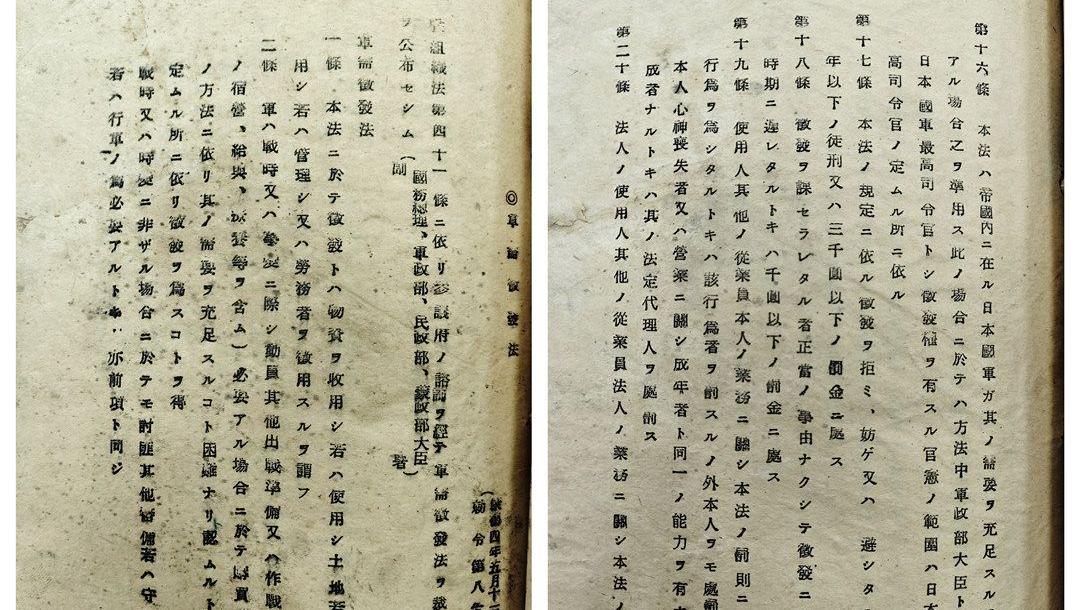 ◎軍需徴發法
四年五月十
勅令第八
組織法第四十一條ニ依リ參議府ノ諮詢ヲ經テ軍需徴發法ヲ裁
ヲ公布セシム
(國務總理、軍政部、民政部、蒙政部大臣副署)
軍需徴發法
一條 本法ニ於テ徴發トハ物資ヲ收用シ若ハ使用シ土地若
用シ若ハ管理シ又ハ勞務者ヲ徴用スルヲ謂フ
二條 軍ハ戰時又ハ事變ニ際シ動員其他出戰準備又ハ作戰
ノ宿營、給與、休養等ヲ含ム)必要アル場合ニ於テ購買
ノ方法ニ依リ其ノ需要ヲ充足スルコト困難ナリ認ムルト
定ムル所ニ依リ徴發ヲ爲スコトヲ得
戰時又ハ時變ニ非ザル場合ニ於テモ討匪其他警備若ハ守
若ハ行軍ノ爲必要アルトキハ亦前項ト同ジ
第十六條 本法ハ帝國內ニ在ル日本國軍ガ其ノ需要ヲ充足スル
アル場合之ヲ準用ス此ノ場合ニ於テハ方法中軍政部大臣ト
日本國軍最高司令官トシ徴發權ヲ有スル官憲ノ範圍ハ日本
高司令官ノ定ムル所ニ依ル
第十七條 本法ノ規定ニ依ル徴發ヲ拒ミ、妨ゲ又ハ避シタ
年以下ノ徒刑又ハ三千圓以下ノ罰金ニ處ス
第十八條 徴發ヲ課セラレタル者正當ノ事由ナクシテ徴發ニ
時期ニ遲レタルトキハ千圓以下ノ罰金ニ處ス
第十九條 使用人其他ノ從業員本人ノ業務ニ關シ本法ノ罰則ニ
行爲ヲ爲シタルトキハ該行爲者ヲ罰スルノ外本人ヲモ處罰
本人心神喪失者又ハ營業ニ關シ成年者ト同一ノ能力ヲ有
成者ナルトキハ其ノ法定代理人ヲ處罰ス
第二十條 法人ノ使用人其他ノ從業員法人ノ業務ニ關シ本法ノ